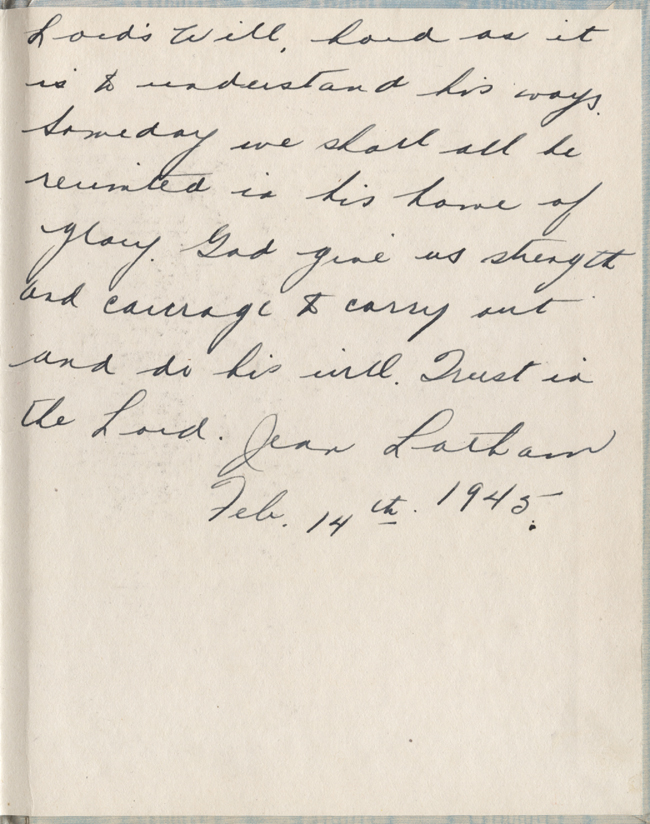 Lord's Will, hard as it
is to understand his ways.
Someday we shall all be
reunited in his home of
glory. God give us strength
and courage to carry out
and do his will. Trust in
the Lord. Jean Latham
Feb. 14th. 1945.